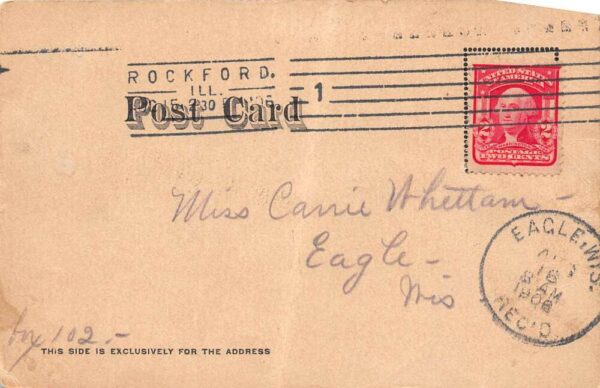 ROCKFORD.
ILL.
730
1
Post Card
UNITED STATES
OF AMERICA
2 2
POSTAGE
TWO CENTS
Miss Carrie Whettam -
Eagle -
Wis
EAGLE, WIS.
16
8 AM
1906
REC'D.
Box 102. -
THIS SIDE IS EXCLUSIVELY FOR THE ADDRESS